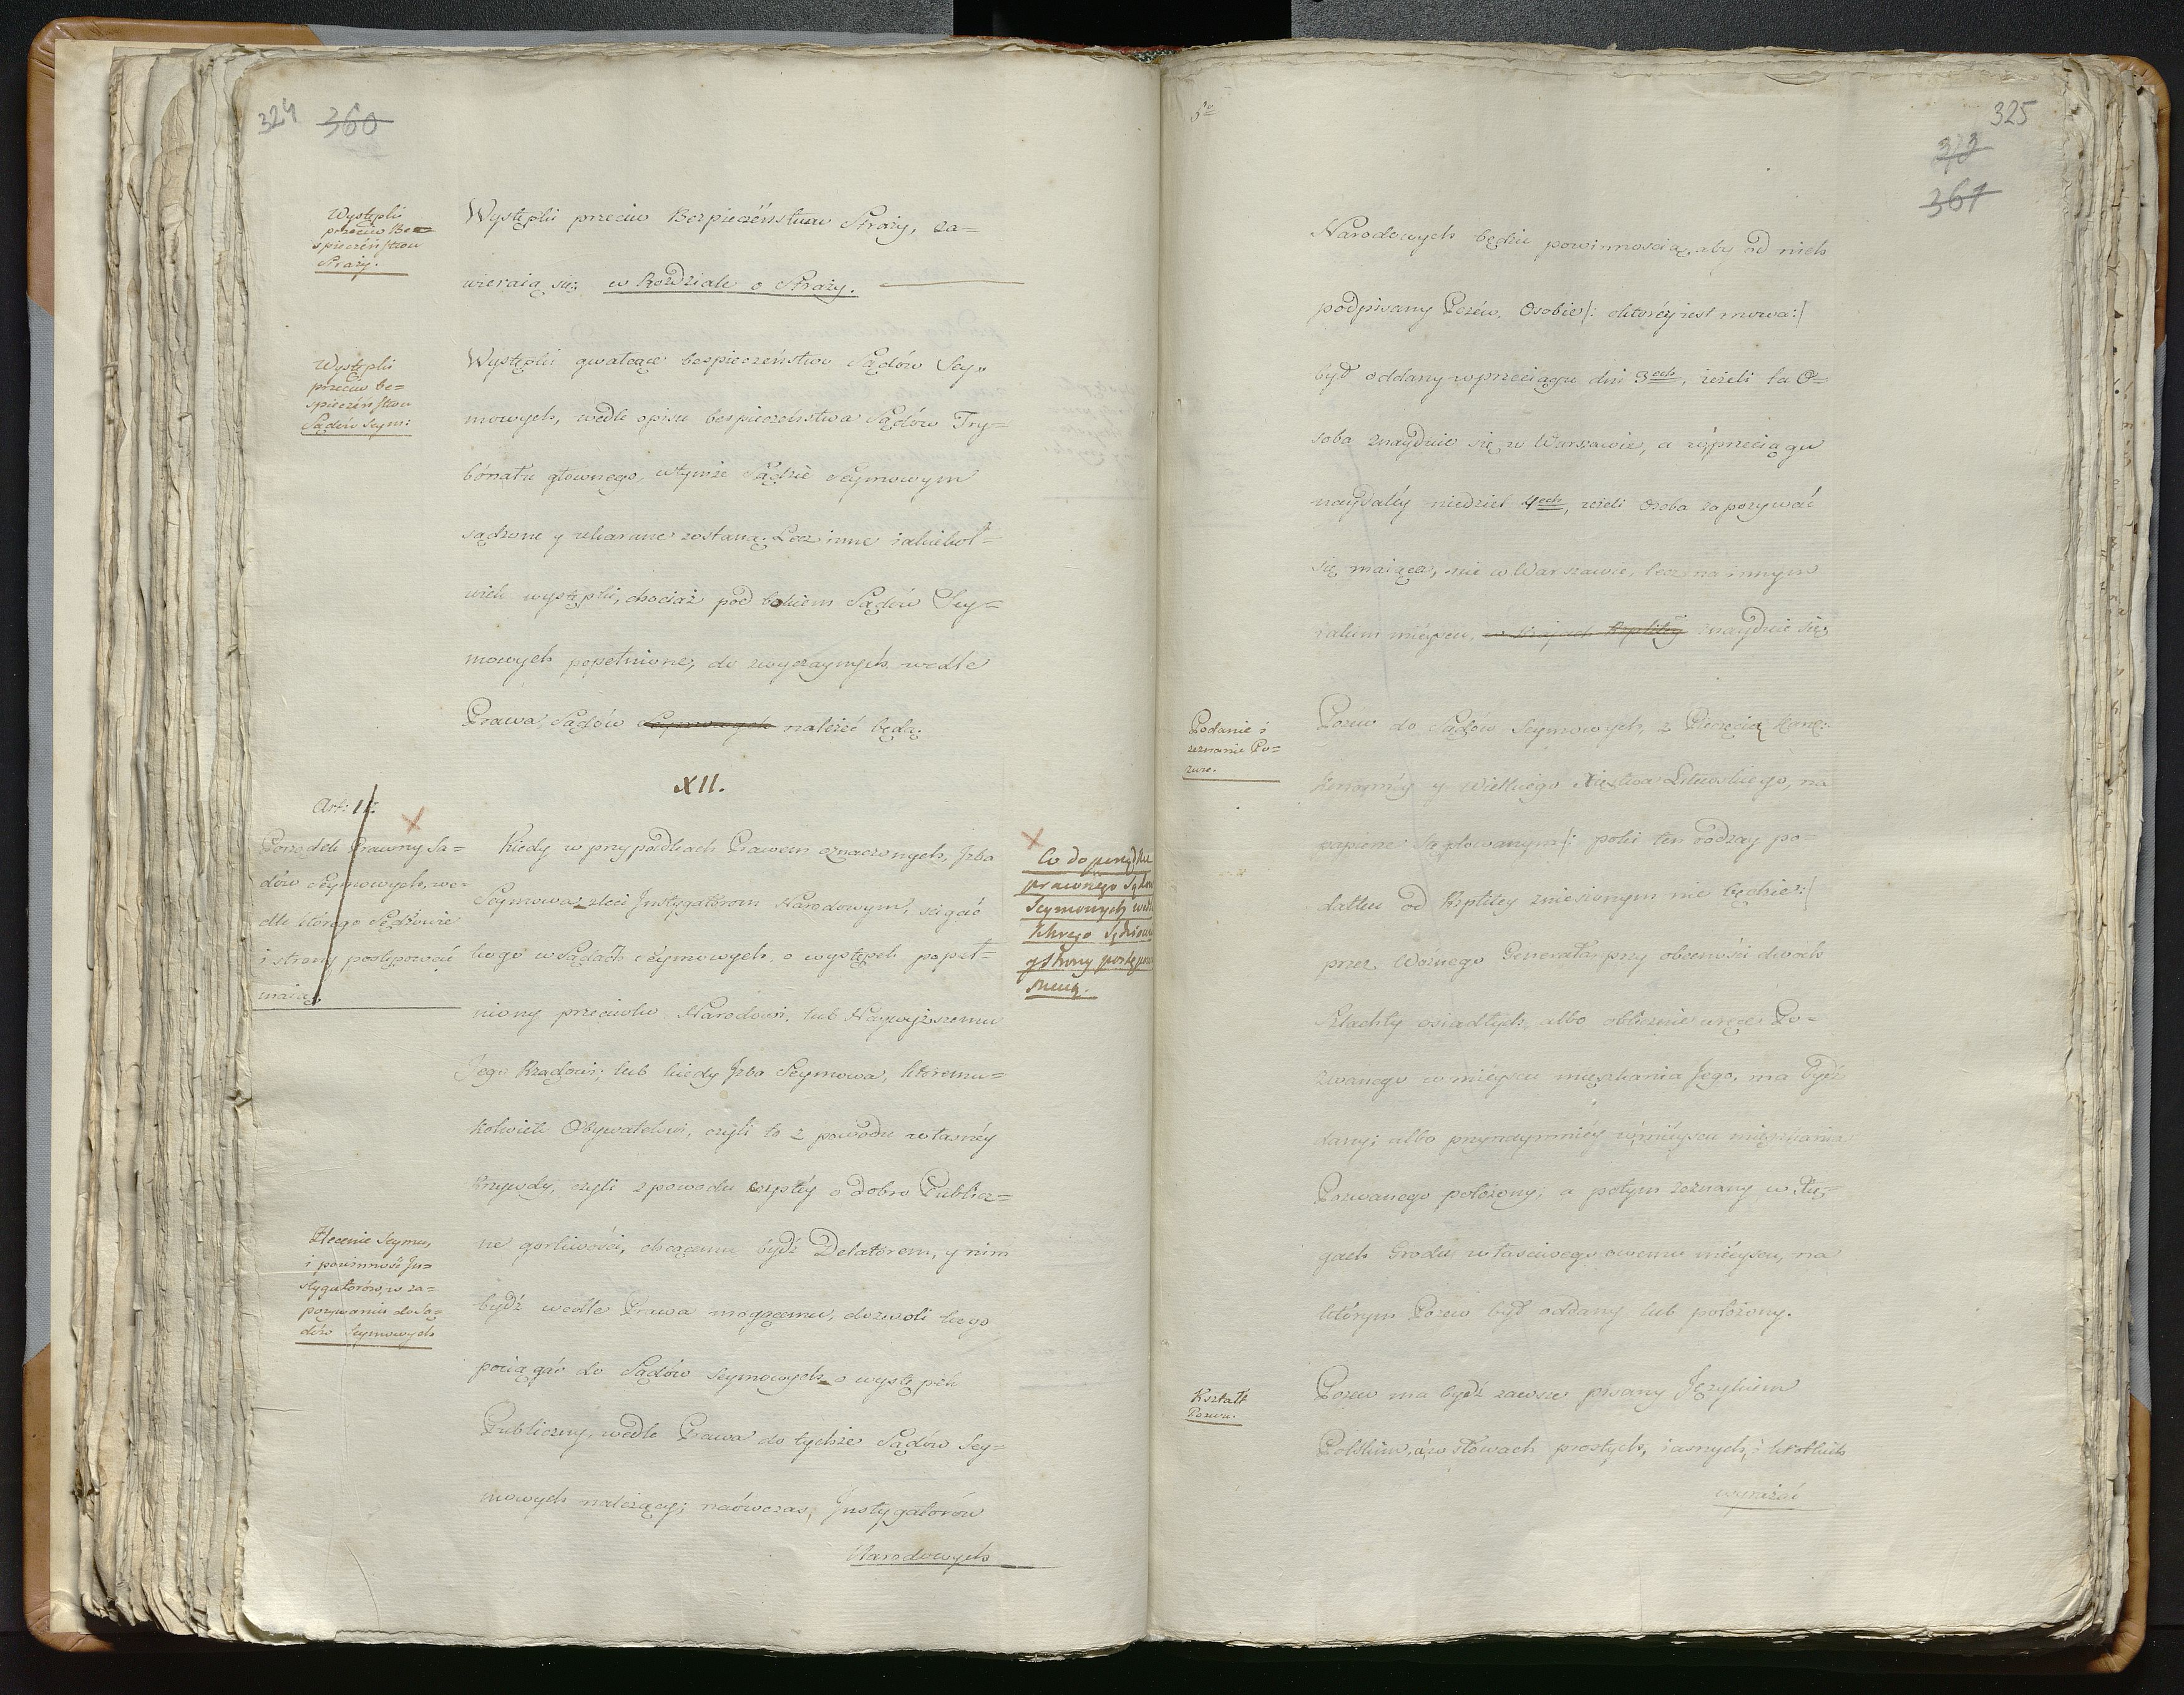 324 360
Występki
przeciw Be=
spieczéństwu
Straży.
Występki przeciw Bezpieczéństwu Straży, za=
wieraią się; w Rozdziale o Straży.
Występki
przeciw be=
spieczéństwu
Sądów Seym:
Występki gwałcące bespieczeństwo Sądów Sey„
mowych, wedle opisu bespieczeństwa Sądów Try=
bónału głownego, wtymże Sądzie Seymowym
sądzone y ukarane zostaną. Lecz inne iakiekol=
wiek występki, chociaż pod bokiem Sądów Sey=
mowych popełnione, do zwyczaynych wedle
Prawa, Sądów Seymowych należéć będą.
XII.
Art: II.
Porządek Prawny Są=
dów Seymowych, we=
dle którego Sędziowie
i strony postępować
maią.
Kiedy w przypadkach Prawem oznaczonych, Jzba
Seymowa zleci Jnstygatorom Narodowym, scigać
kogo w Sądach Seymowych, o występek popeł=
niony przeciwko Narodowi, lub Naywyższemu
Jego Rządowi; lub kiedy Jzba Seymowa, któremu=
kolwiek Obywatelowi, czyli to z powodu własnéy
krzywdy, czyli z powodu czystéy o dobro Publicz=
ne gorliwości, chcącemu bydź Delatorem, y nim
bydź wedle Prawa mogącemu, dozwoli kogo
pociągać do Sądów Seymowych o występek
Publiczny, wedle Prawa do tychże Sądów Sey=
mowych należący; naówczas, Jnstygatorów
Narodowych
Co do porządku
prawnego Sądów
Seymowych wedle
którego Sędziowie
y strony postępować
maią.
Zlecenie Seymu,
i powinność Jn=
stygatorów, w za=
pozywaniu do Są=
dów Seymowych
325
373
361
Narodowych będzie powinnością, aby od nich
podpisany Pozéw, Osobie /: októréy iest mowa :/
był oddany wprzeciągu dni 3ech, ieżeli ta O=
soba znayduie się w Warszawie, a w przeciągu
naydaléy niedziel 4ech, ieżeli Osoba zapozywać
się maiąca, nie w Warszawie, lecz na innym
iakim mieyscu, w kraiach Rzplitéy znayduie się;
Podanie i
zeznanie Po=
zwu.
Pozew do Sądów Seymowych, z Pieczęcią Kanc:
Koronnéy y Wielkiego Xięstwa Litewskiego, na
papierze sztęplowanym /: poki ten rodzay po=
datku od Rzplitey zniesionym nie będzie :/
przez Woznego Generała, przy obecności dwoch
Szlachty osiadłych, albo oblicznie wręce Po=
zwanego w mieyscu mieszkania Jego, ma bydź
dany; albo przynaymniéy w mieyscu mieszkania
Pozwanego położony; a potym zeznany w Xię=
gach Grodu, właściwego owemu mieyscu, na
którym Pozew był oddany lub położony.
Kształt
Pozwu.
Pozew ma bydź zawsze pisany Językiem
Polskim, a w słowach prostych, iasnych, i krotkich
wyrazić